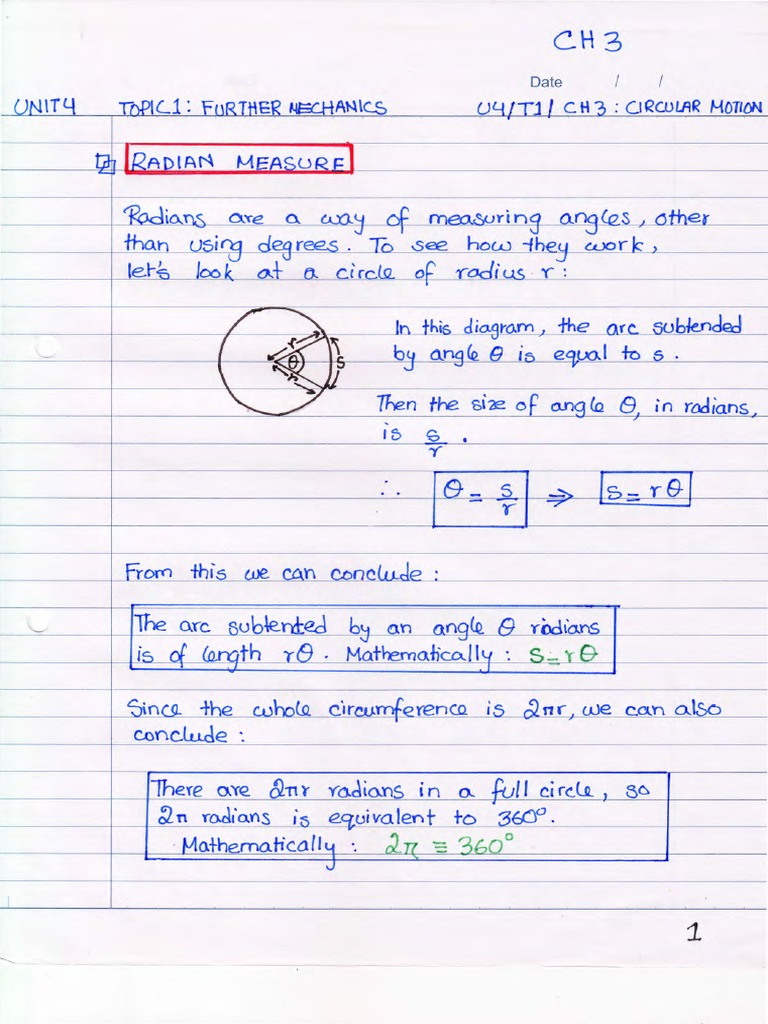 CH 3
Date / /
UNIT 4 TOPIC 1: FURTHER MECHANICS U4/T1/ CH3: CIRCULAR MOTION
RADIAN MEASURE
Radians are a way of measuring angles, other
than using degrees. To see how they work,
let's look at a circle of radius r:
r
θ
r
S
In this diagram, the arc subtended
by angle θ is equal to s.
Then the size of angle θ, in radians,
is s/r.
∴ θ = s/r ⇒ s = rθ
From this we can conclude:
The arc subtented by an angle θ radians
is of length rθ. Mathematically: S = rθ
Since the whole circumference is 2πr, we can also
conclude:
There are 2πr radians in a full circle, so
2π radians is equivalent to 360°.
Mathematically: 2π ≡ 360°
1